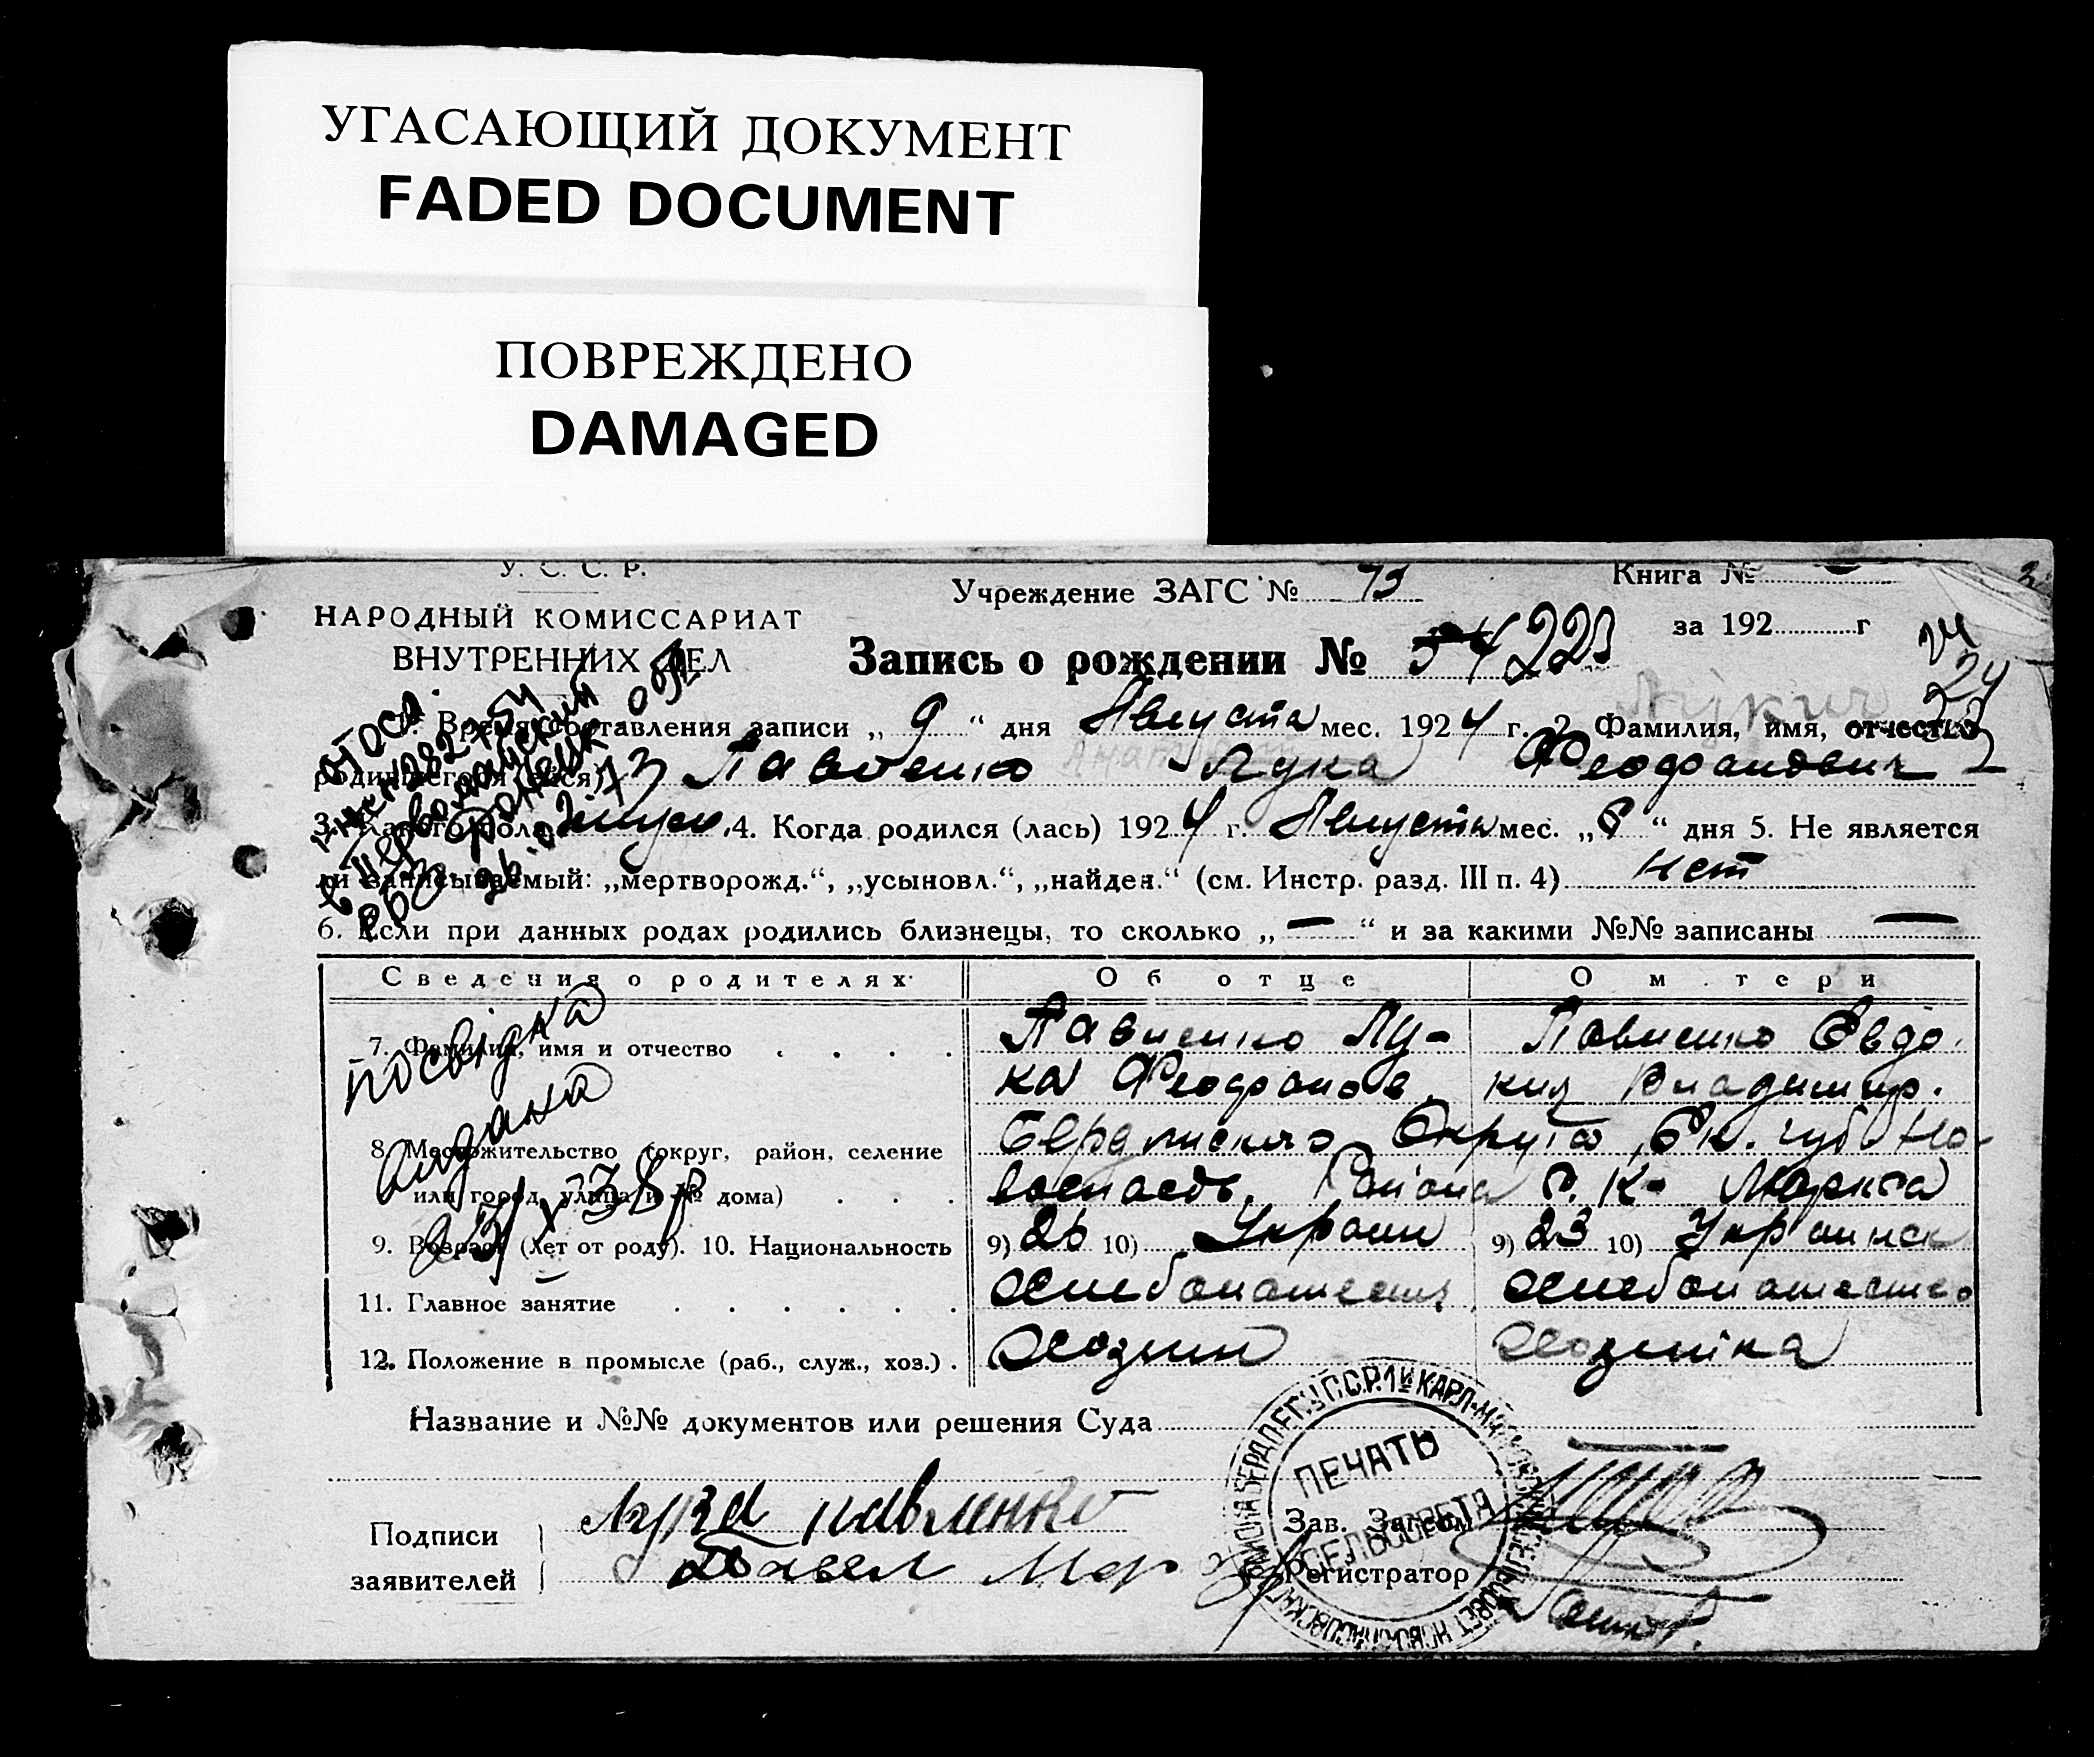 УГАСАЮЩИЙ ДОКУМЕНТ
FADED DOCUMENT
ПОВРЕЖДЕНО
DAMAGED
У. С. С. Р.
НАРОДНЫЙ КОМИССАРИАТ
ВНУТРЕННИХ ДЕЛ
Учреждение ЗАГС № 75
Книга №
за 192 г
Запись о рождении № 54 223
24
1. Время составления записи „ 9 “ дня Августа мес. 1924 г. 2. Фамилия, имя, отчество
родившегося (ейся) Павленко Лука Феофанович
3. Какого пола муж. 4. Когда родился (лась) 1924 г. Августа мес. „ 6 “ дня 5. Не является
ли записываемый: „мертворожд.“, „усыновл.“, „найден.“ (см. Инстр. разд. III п. 4) нет
6. Если при данных родах родились близнецы, то сколько „ — “ и за какими №№ записаны —
Сведения о родителях Об отце О м тери
7. Фамилия, имя и отчество
Павленко Лу-
ка Феофанов.
Павленко Евдо
кия Владимир.
посвідка
видана
8. Местожительство (округ, район, селение
или город, улица и № дома)
Бердянского Округа Ек. губ. Но-
воспасов. Района С. К. Маркса
9. Возраст (лет от роду). 10. Национальность 9) 26 10) Украин 9) 23 10) Украинск
11. Главное занятие хлебопашество хлебопашество
12. Положение в промысле (раб., служ., хоз.) . Хозяин Хозяйка
Название и №№ документов или решения Суда
Подписи
заявителей
Лука павленко
Павел Мор
ПЕЧАТЬ
СЕЛЬСОВЕТА
Зав. Загсом
Регистратор